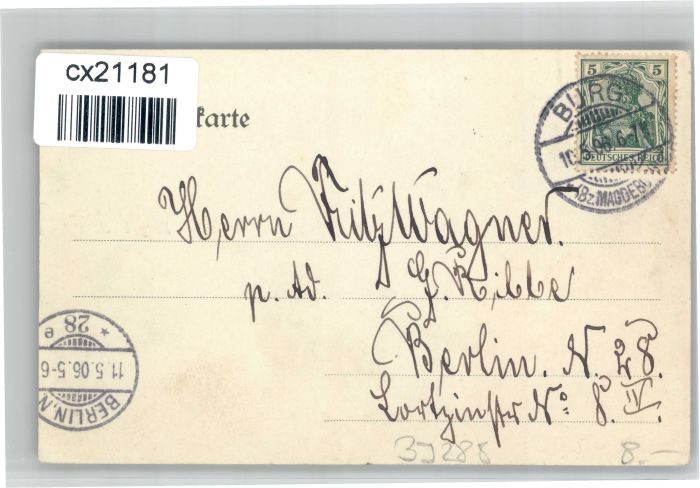 cx21181
karte
5 5
DEUTSCHES REICH
BURG
10.5.06.6-7
(Bz. MAGDEB
Herrn Fritz Wagner.
p. Ad. G. Ribbe
Berlin. N. 28.
Lortzinstr No: 8. IV.
* 28 e
11.5.06.5-6
BERLIN.N.
BJ288
8.—